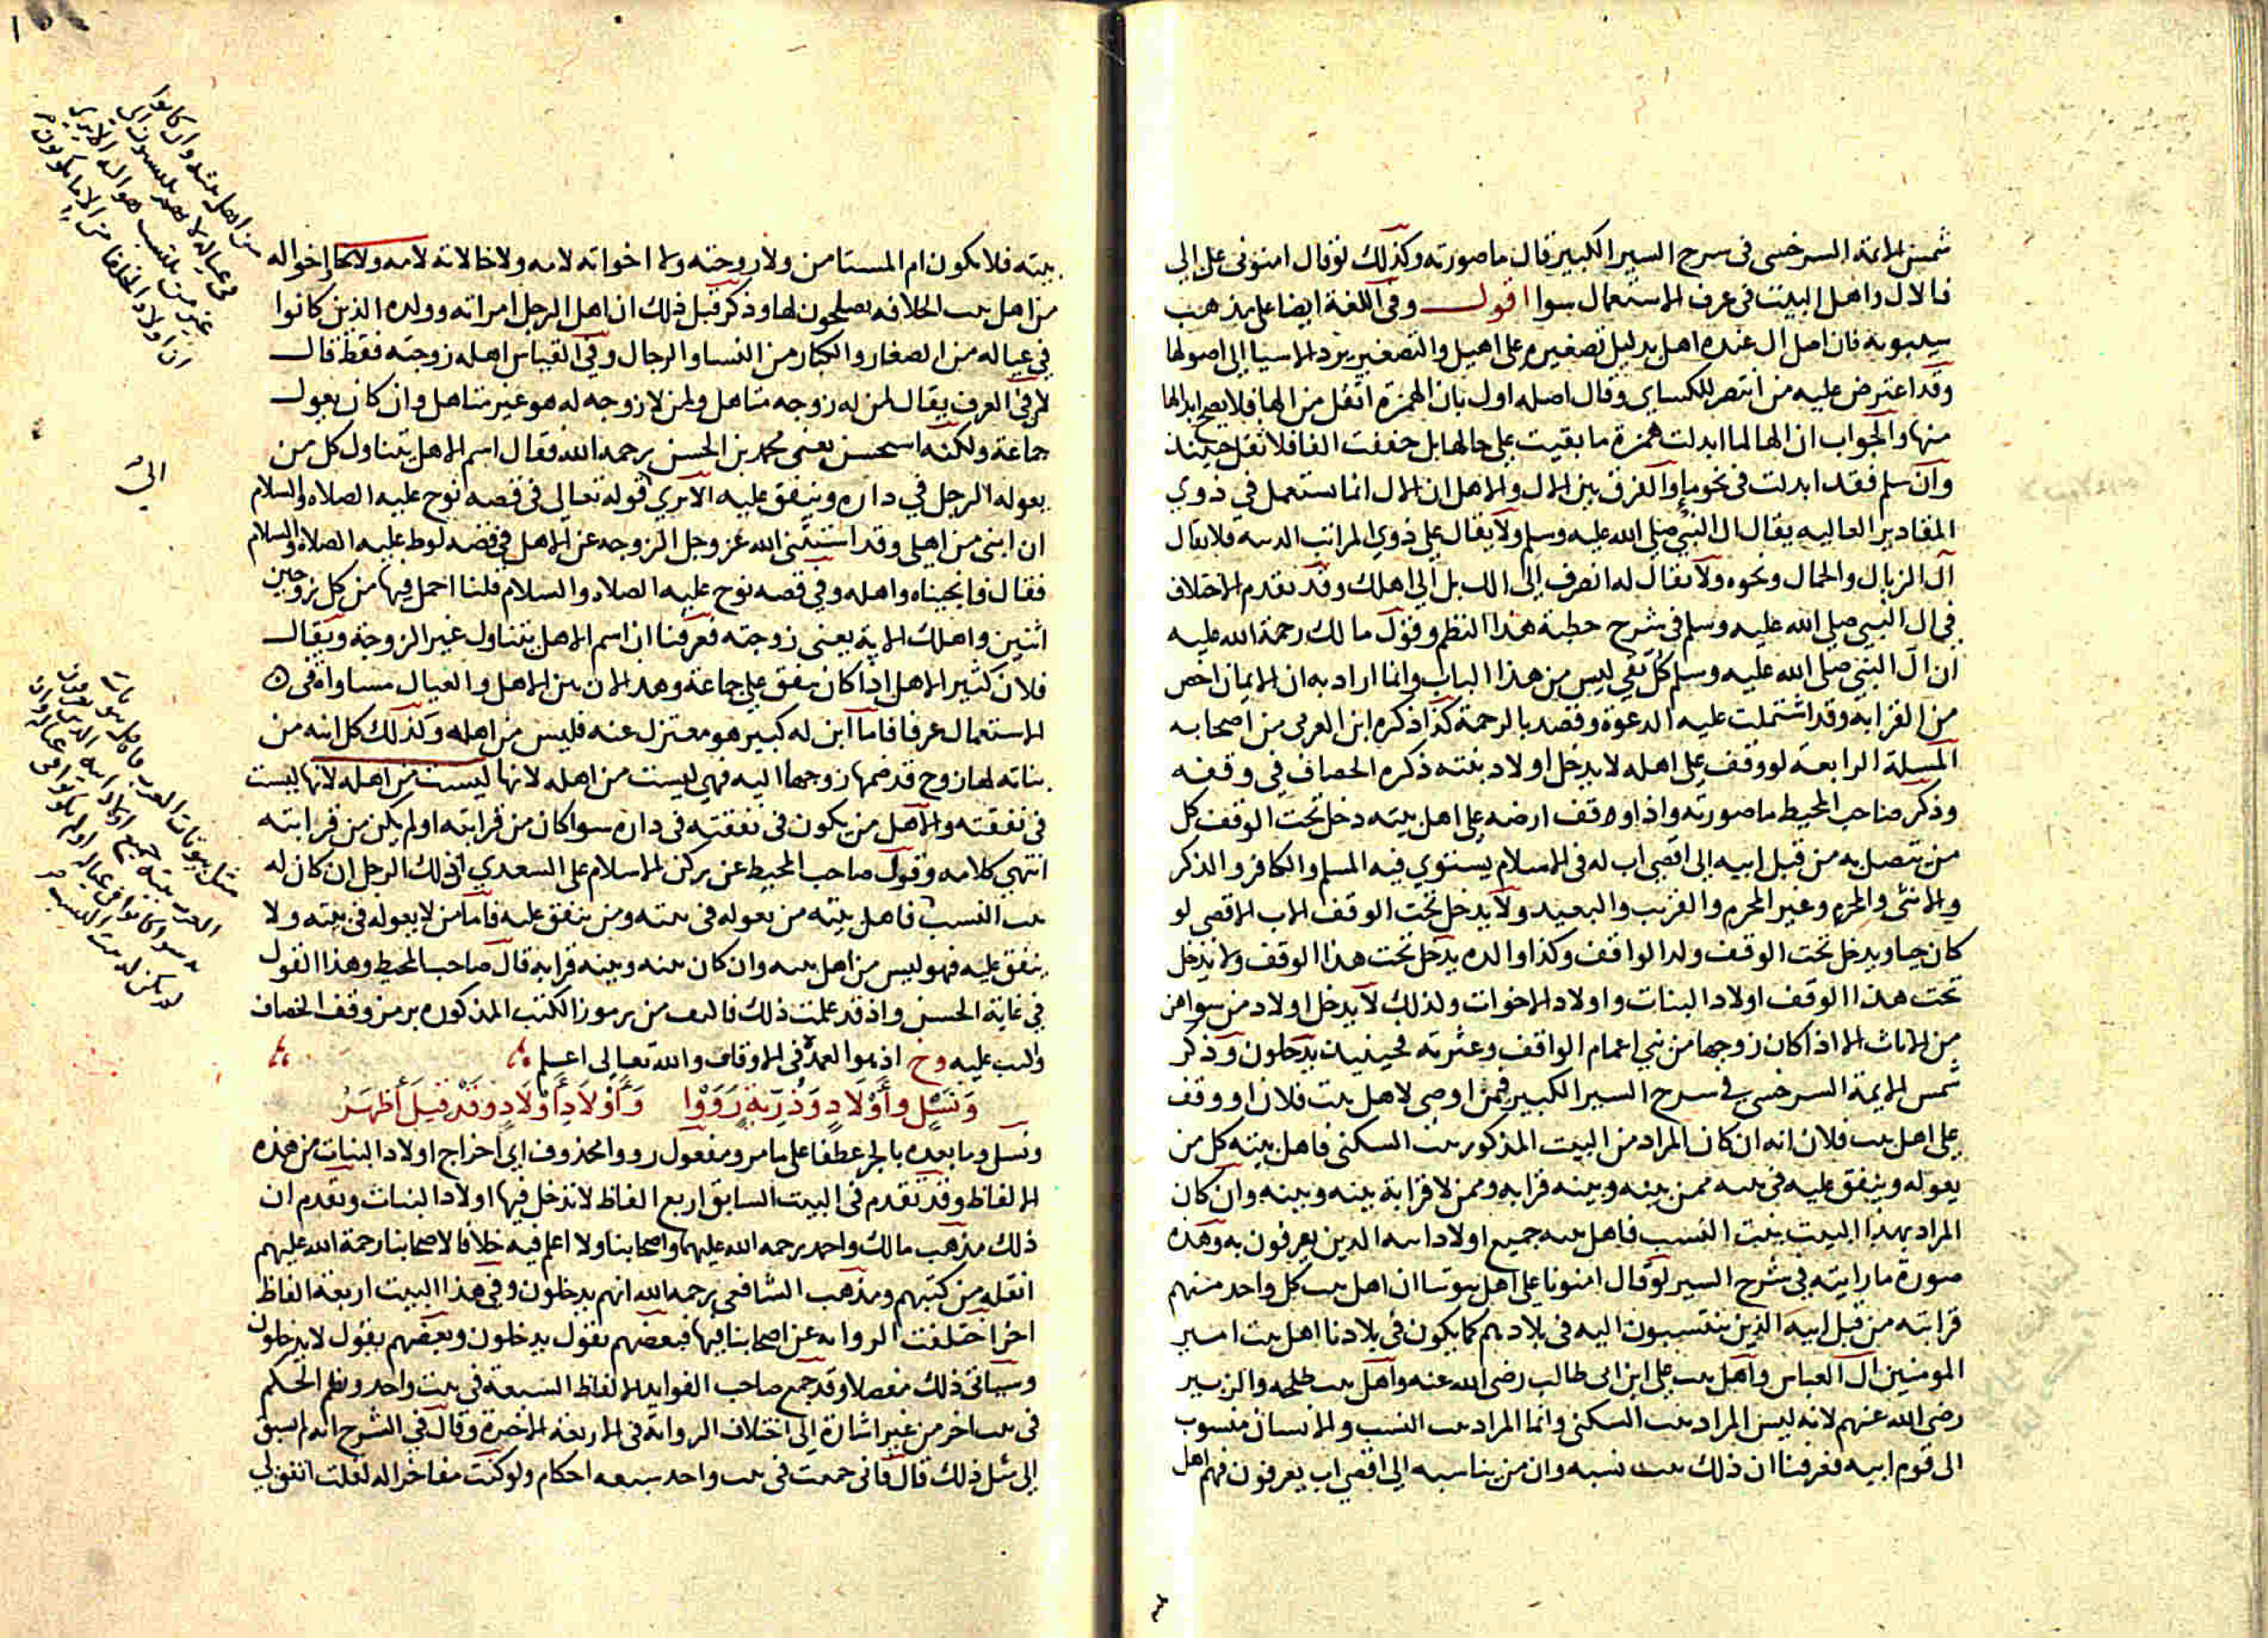 شمس الايمة السرخسى فى سرح السير الكبير قال ما صورته وكذلك لو قال امنونى على الى
فالال واهل البيت فى عرف الاستعمال سوا اقول وفى اللغة ايضا على مذهب
سيبويه فان اصل ال عنده اهل بدليل تصغيره على اهيل والتصغير يرد الاسيا الى اصولها
وقد اعترض عليه من انتصر للكساى وقال اصله اول بان الهمزة اثقل من الها فلا يصح ابدالها
منها والجواب ان الها لما ابدلت همزة ما بقيت على حالها بل خففت الفا فلا ثقل حينئذ
وان سلم فقد ابدلت فى نحو ما والفرق بين الال والاهل ان الال انما يستعمل فى ذوي
المقادير العاليه يقال ال النبى صلى الله عليه وسلم ولا يقال على ذوي المراتب الدنيه فلا يقال
ال الزبال والحمال ونحوه ولا يقال له انصرف الى الك بل الى اهلك وقد تقدم الاختلاف
فى ال النبى صلى الله عليه وسلم فى شرح خطبة هذا النظم وقول مالك رحمة الله عليه
ان ال النبى صلى الله عليه وسلم كل تقى ليس من هذا الباب وانما اراد به ان الايمان اخص
من القرابة وقد اشتملت عليه الدعوة وقصد بالرحمة كذا ذكره ابن العربى من اصحابه
المسلة الرابعة لو وقف على اهله لا يدخل اولاد بنته ذكره الخصاف في وقفه
وذكر صاحب المحيط ما صورته واذا وقف ارضه على اهل بيته دخل تحت الوقف كل
من يتصل به من قبل ابيه الى اقصى اب له فى الاسلام يستوي فيه المسلم والكافر والذكر
والانثى والمحرم وغير المحرم والقريب والبعيد ولا يدخل تحت الوقف الاب الاقصى لو
كان حيا ويدخل تحت الوقف ولد الواقف وكذا والده يدخل تحت هذا الوقف ولا يدخل
تحت هذا الوقف اولاد البنات واولاد الاخوات ولذلك لا يدخل اولاد من سواهن
من الاناث الا اذا كان زوجها من بنى اعمام الواقف وعثرته فحينيذ يدخلون وذكر
شمس الايمة السرخسى فى سرح السير الكبير فيمن اوصى لاهل بيت فلان او وقف
على اهل بيت فلان انه ان كان المراد من البيت المذكور بيت السكنى فاهل بيته كل من
يعوله وينفق عليه فى بيته ممن بينه وبينه قرابة وممن لا قرابة بينه وبينه وان كان
المراد بهذا البيت بيت النسب فاهل بيته جميع اولاد ابيه الذين يعرفون به وهذه
صورة ما رايته فى شرح السير لو قال امنونا على اهل بيوتنا ان اهل بيت كل واحد منهم
قرابته من قبل ابيه الذين ينتسبون اليه فى بلادهم كما يكون فى بلادنا اهل بيت امير
المومنين ال العباس واهل بيت على ابن ابى طالب رضى الله عنه واهل بيت طلحه والزبير
رضى الله عنهم لانه ليس المراد بيت السكنى وانما المراد بيت النسب والانسان منسوب
الى قوم ابيه فعرفنا ان ذلك بيت نسبه وان من يناسبه الى اقصى اب يعرفون فهم اهل
بيته فلا يكون ام المستامن ولا زوجته ولا اخواته لامه ولا خالاته لامه ولا اخواله
من اهل بيت الخلافه يصلحون لها وذكر قبل ذلك ان اهل الرجل امراته وولده الذين كانوا
في عياله من الصغار والكبار من النسا والرجال وفى القياس اهله زوجته فقط قال
لان فى العرف يقال لمن له زوجه متاهل ولمن لا زوجه له هو غير متاهل وان كان يعول
جماعة ولكنه استحسن يعنى محمد بن الحسن رحمه الله فقال اسم الاهل يتناول كل من
يعوله الرجل في داره وينفق عليه الا ترى قوله تعالى فى قصه نوح عليه الصلاه والسلام
ان ابنى من اهلى وقد استثنى الله عز وجل الزوجه عن الاهل فى قصه لوط عليه الصلاه والسلام
فقال فانجيناه واهله وفى قصه نوح عليه الصلاه والسلام قلنا احمل فيها من كل زوجين
اثنين واهلك الاية يعنى زوجته فعرفنا ان اسم الاهل يتناول غير الزوجة ويقال
فلان كثير الاهل اذا كان ينفق على جماعة وهذا لان بين الاهل والعيال مساواة فى
الاستعمال عرفا فاما ابن له كبير هو معتزل عنه فليس من اهله وكذلك كل ابنه من
بناته لها زوج قد ضمها زوجها اليه فهي ليست من اهله لانها ليست من اهله لانها ليست
فى نفقته والاهل من يكون فى نفقته فى داره سوا كان من قرابته او لم يكن من قرابته
انتهى كلامه وقول صاحب المحيط عن ركن الاسلام على السعدي ان ذلك الرجل ان كان له
بيت النسب فاهل بيته من يعوله فى بيته ومن ينفق عليه فاما من لا يعوله فى بيته ولا
ينفق عليه فهو ليس من اهل بيته وان كان بينه وبينه قرابة قال صاحب المحيط وهذا القول
فى غاية الحسن واذ قد علمت ذلك فالبيت من رموز الكتب المذكوره برمز وقف الخصاف
والبت عليه وخ اذ هو العمدة فى الاوقاف والله تعالى اعلم
وَنَسْلٍ وأَوْلَادٍ وَذُرِّيَةٍ رَوَوْا وَأَوْلَادِ أَوْلَادٍ وَقَدْ قِيلَ أَظْهَرُ
ونسل وما بعده بالجر عطفا على ما مر ومفعول رووا محذوف اي اخراج اولاد البنات من هذه
الالفاظ وقد تقدم فى البيت السابق اربع الفاظ لا تدخل فيها اولاد البنات وتقدم ان
ذلك مذهب مالك واحمد رحمة الله عليهما واصحابنا ولا اعلم فيه خلافا لاصحابنا رحمة الله عليهم
انقله من كتبهم ومذهب الشافعى رحمه الله انهم يدخلون وفى هذا البيت اربعة الفاظ
اخر اختلفت الروايه عن اصحابنا فيها فبعضهم يقول يدخلون وبعضهم يقول لا يدخلون
وسياتى ذلك مفصلا وقد جمع صاحب الفوايد الالفاظ السبعة فى بيت واحد ونظم الحكم
فى بيت اخر من غير اشارة الى اختلاف الرواية فى الاربعة الاخيرة وقال فى الشرح انه لم يسبق
الى مثل ذلك قال فانى جمعت فى بيت واحد سبعه احكام ولو كنت مفاخرا له لقلت اتفق لى
من اهل بيته وان كانوا
فى عياله لانهم ينسبون الى
ان اولاد الخلفا من الاما يكونون
الى